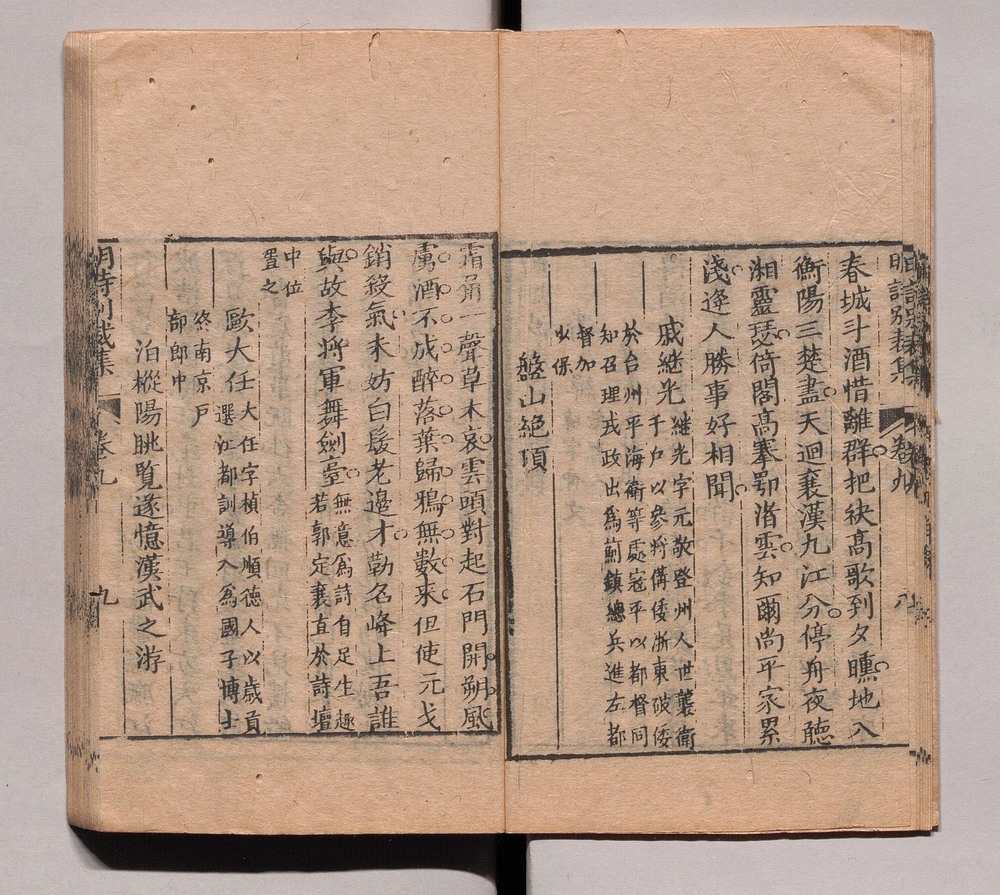 明詩別裁集 卷九 八
春城斗酒惜離群把袂高歌到夕曛地入
衡陽三楚盡天迴襄漢九江分停舟夜聽
湘靈瑟倚閣高搴鄂渚雲知爾尚平家累
淺逢人勝事好相聞
戚繼光 繼光字元敬登州人世襲衛
千户以參將備倭浙東破倭
於台州平海衛等處寇平以都督同
知召理戎政出爲薊鎮總兵進左都
督加
少保
盤山絕頂
霜角一聲草木哀雲頭對起石門開朔風
虜酒不成醉落葉歸鴉無數來但使元戈
銷殺氣未妨白髮老邊才勒名峰上吾誰
與故李將軍舞劍臺 無意爲詩自足生趣
若郭定襄直於詩壇
中位
置之
歐大任 大任字楨伯順德人以歲貢
選江都訓導入爲國子博士
終南京户
部郎中
泊樅陽眺覽遂憶漢武之游
明詩別裁集 卷九 九